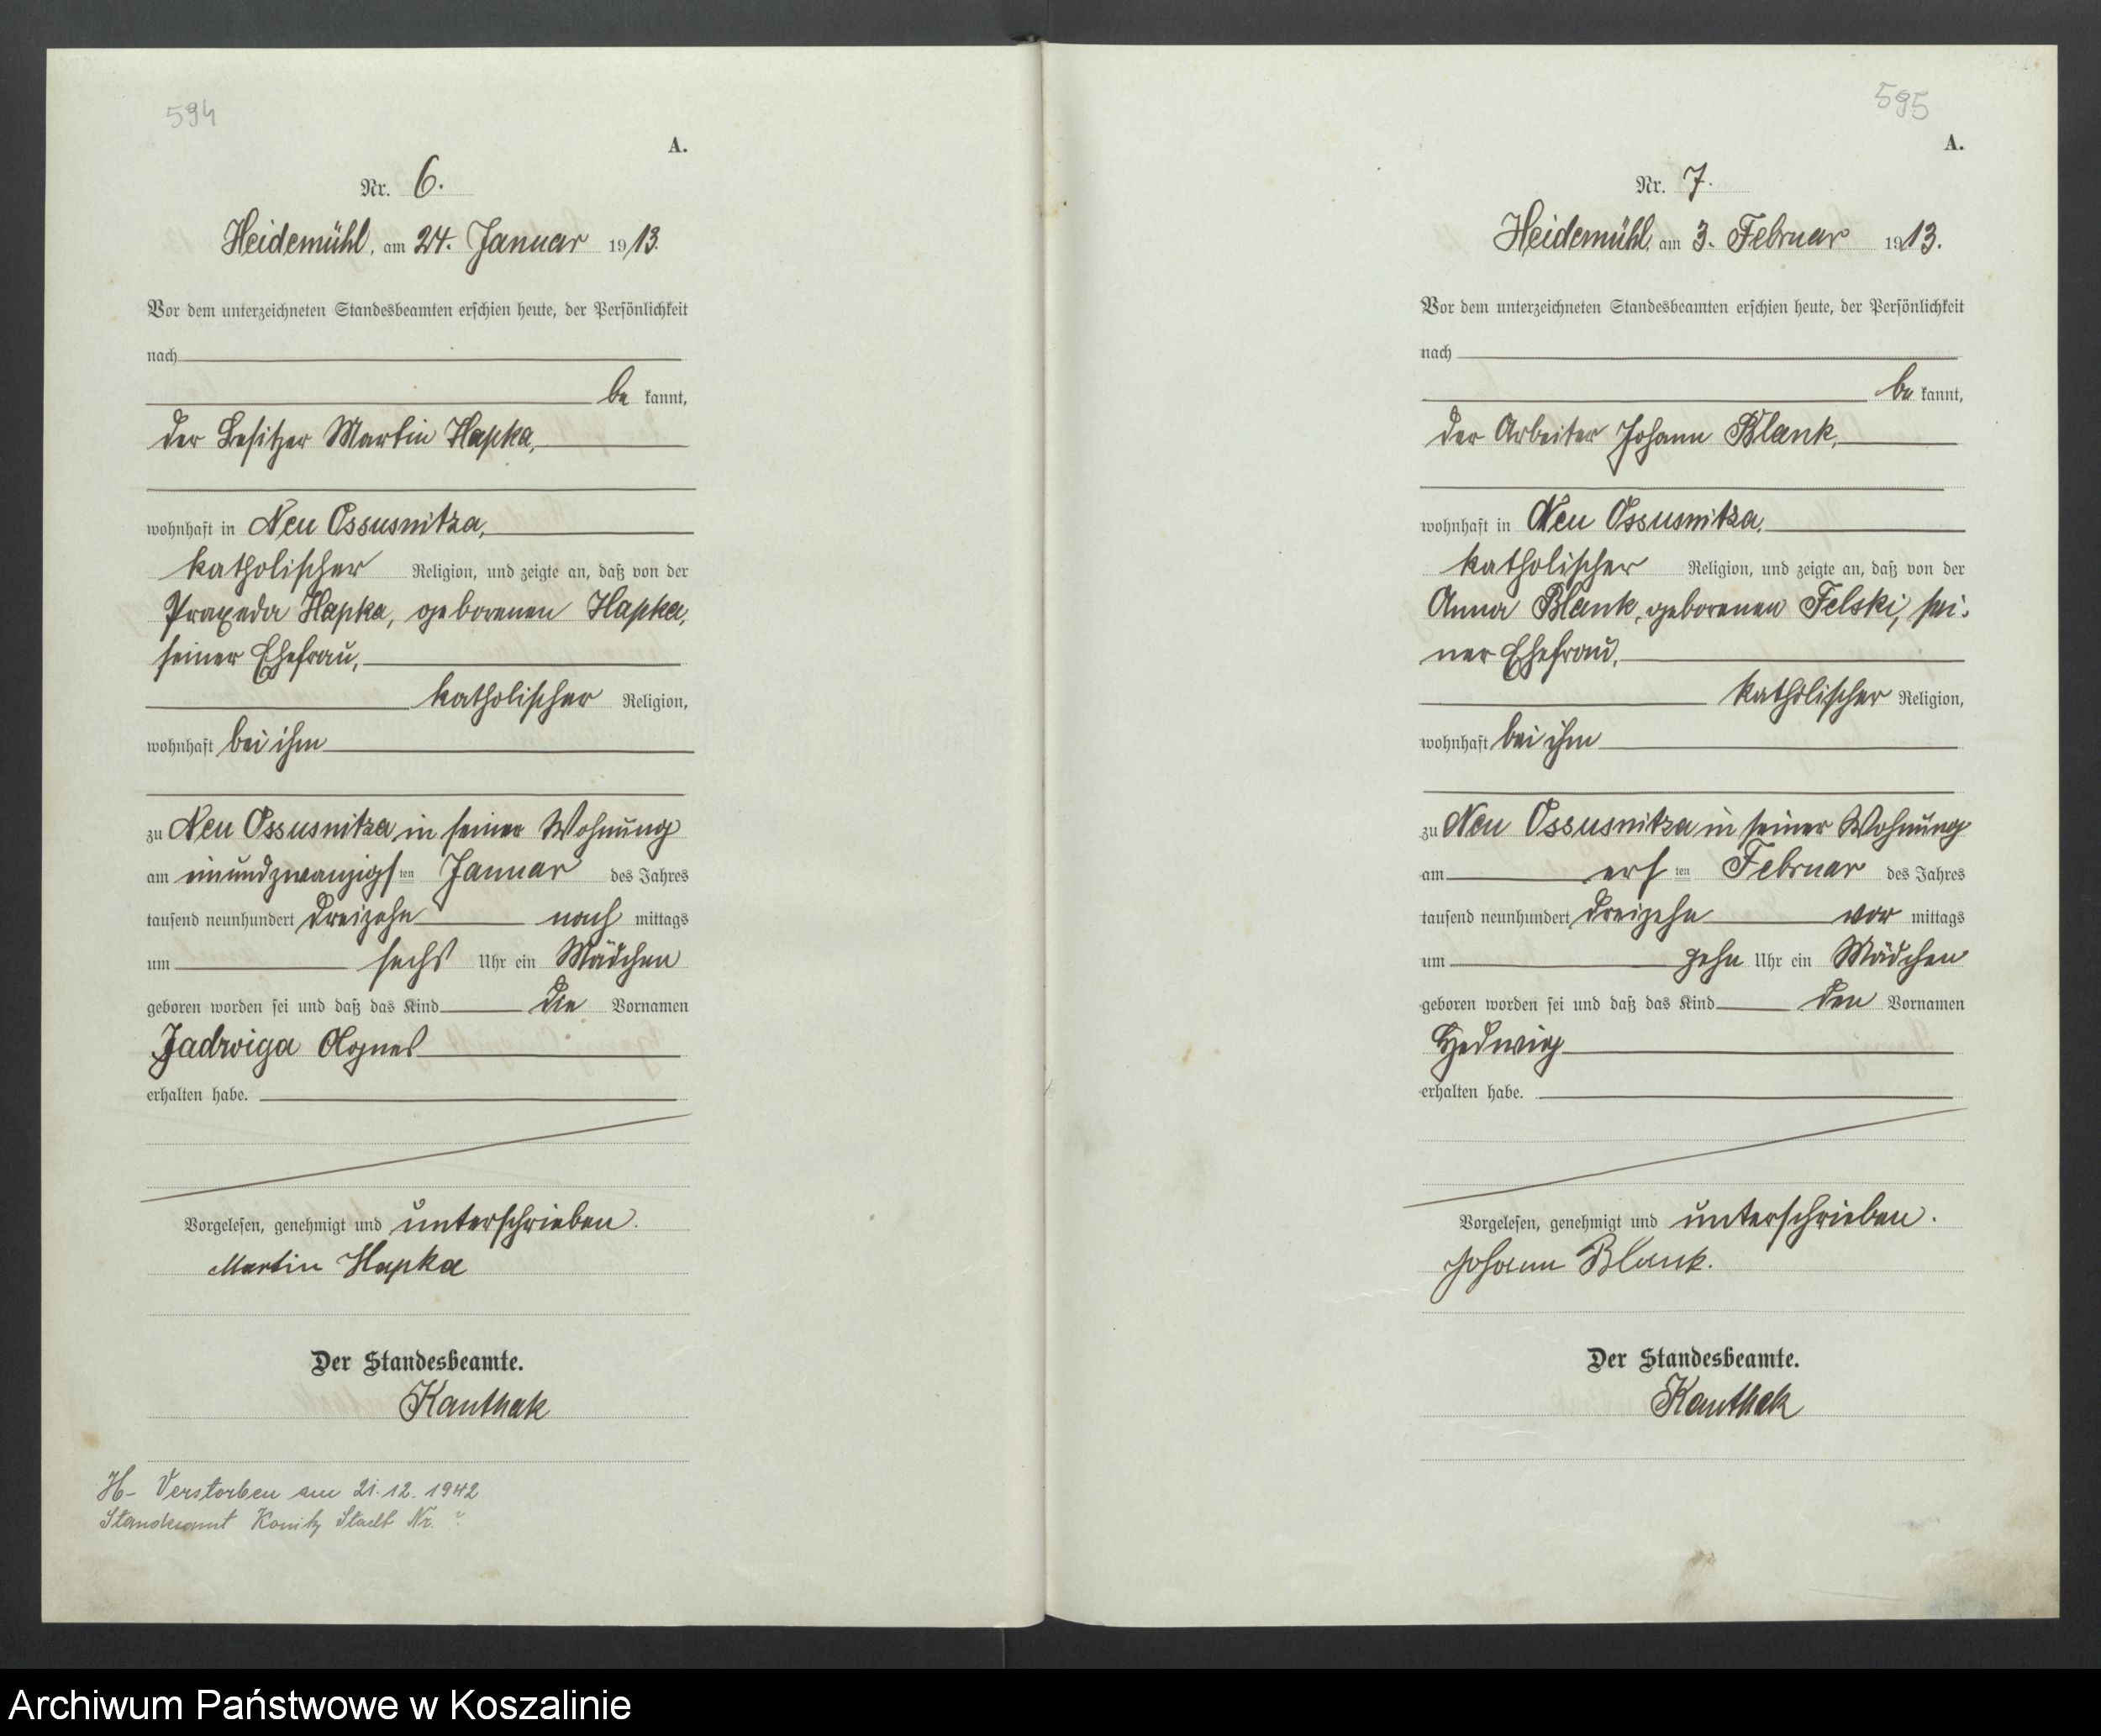 594
A.
Nr. 6.
Heidemühl, am 24. Januar 1913.
Vor dem unterzeichneten Standesbeamten erschien heute, der Persönlichkeit
nach
be kannt,
der Besitzer Martin Hapka,
wohnhaft in Neu Ossusnitza,
katholischer Religion, und zeigte an, daß von der
Praxeda Hapka, geborenen Hapka,
seiner Ehefrau,
katholischer Religion,
wohnhaft bei ihm
zu Neu Ossusnitza in seiner Wohnung
am einundzwanzigsten Januar des Jahres
tausend neunhundert dreizehn nach mittags
um sechs Uhr ein Mädchen
geboren worden sei und daß das Kind die Vornamen
Jadwiga Agnes
erhalten habe.
Vorgelesen, genehmigt und unterschrieben.
Martin Hapka
Der Standesbeamte.
Kauthak
H- Verstorben am 21.12.1942
Standesamt Konitz Stadt Nr. ?
595
A.
Nr. 7.
Heidemühl, am 3. Februar 1913.
Vor dem unterzeichneten Standesbeamten erschien heute, der Persönlichkeit
nach
be kannt,
der Arbeiter Johann Blank,
wohnhaft in Neu Ossusnitza,
katholischer Religion, und zeigte an, daß von der
Anna Blank, geborenen Felski, sei-
ner Ehefrau,
katholischer Religion,
wohnhaft bei ihm
zu Neu Ossusnitza in seiner Wohnung
am ersten Februar des Jahres
tausend neunhundert dreizehn vor mittags
um zehn Uhr ein Mädchen
geboren worden sei und daß das Kind den Vornamen
Hedwig
erhalten habe.
Vorgelesen, genehmigt und unterschrieben.
Johann Blank.
Der Standesbeamte.
Kauthak
Archiwum Państwowe w Koszalinie